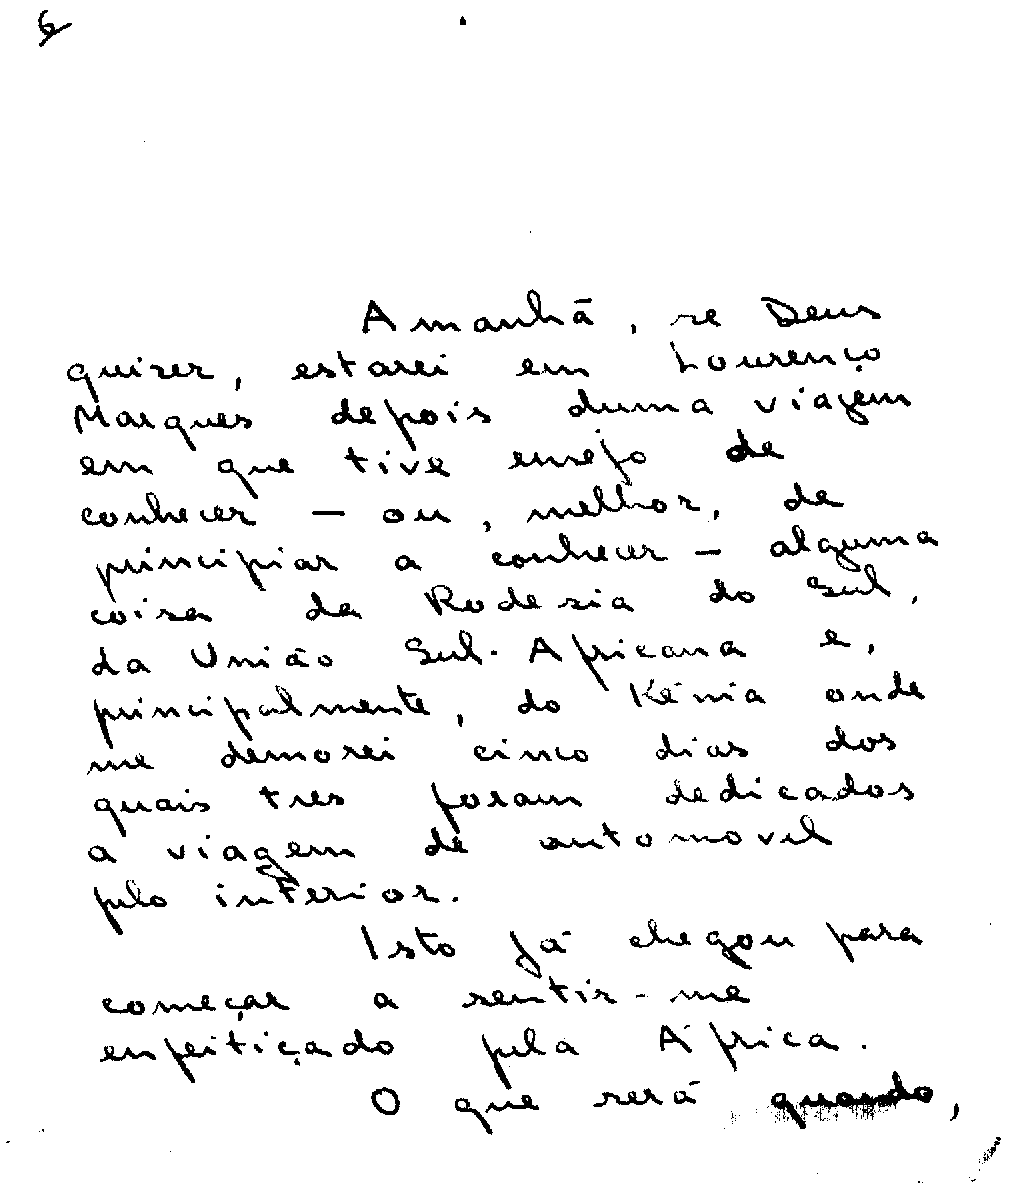 6
Amanhã, se Deus
quiser, estarei em Lourenço
Marques depois duma viagem
em que tive ensejo de
conhecer – ou, melhor, de
principiar a conhecer – alguma
coisa da Rodesia do Sul,
da União Sul-Africana e,
principalmente, do Kénia onde
me demorei cinco dias dos
quais tres foram dedicados
a viagem de automovel
pelo interior.
Isto já chegou para
começar a sentir-me
enfeitiçado pela África.
O que será quando,